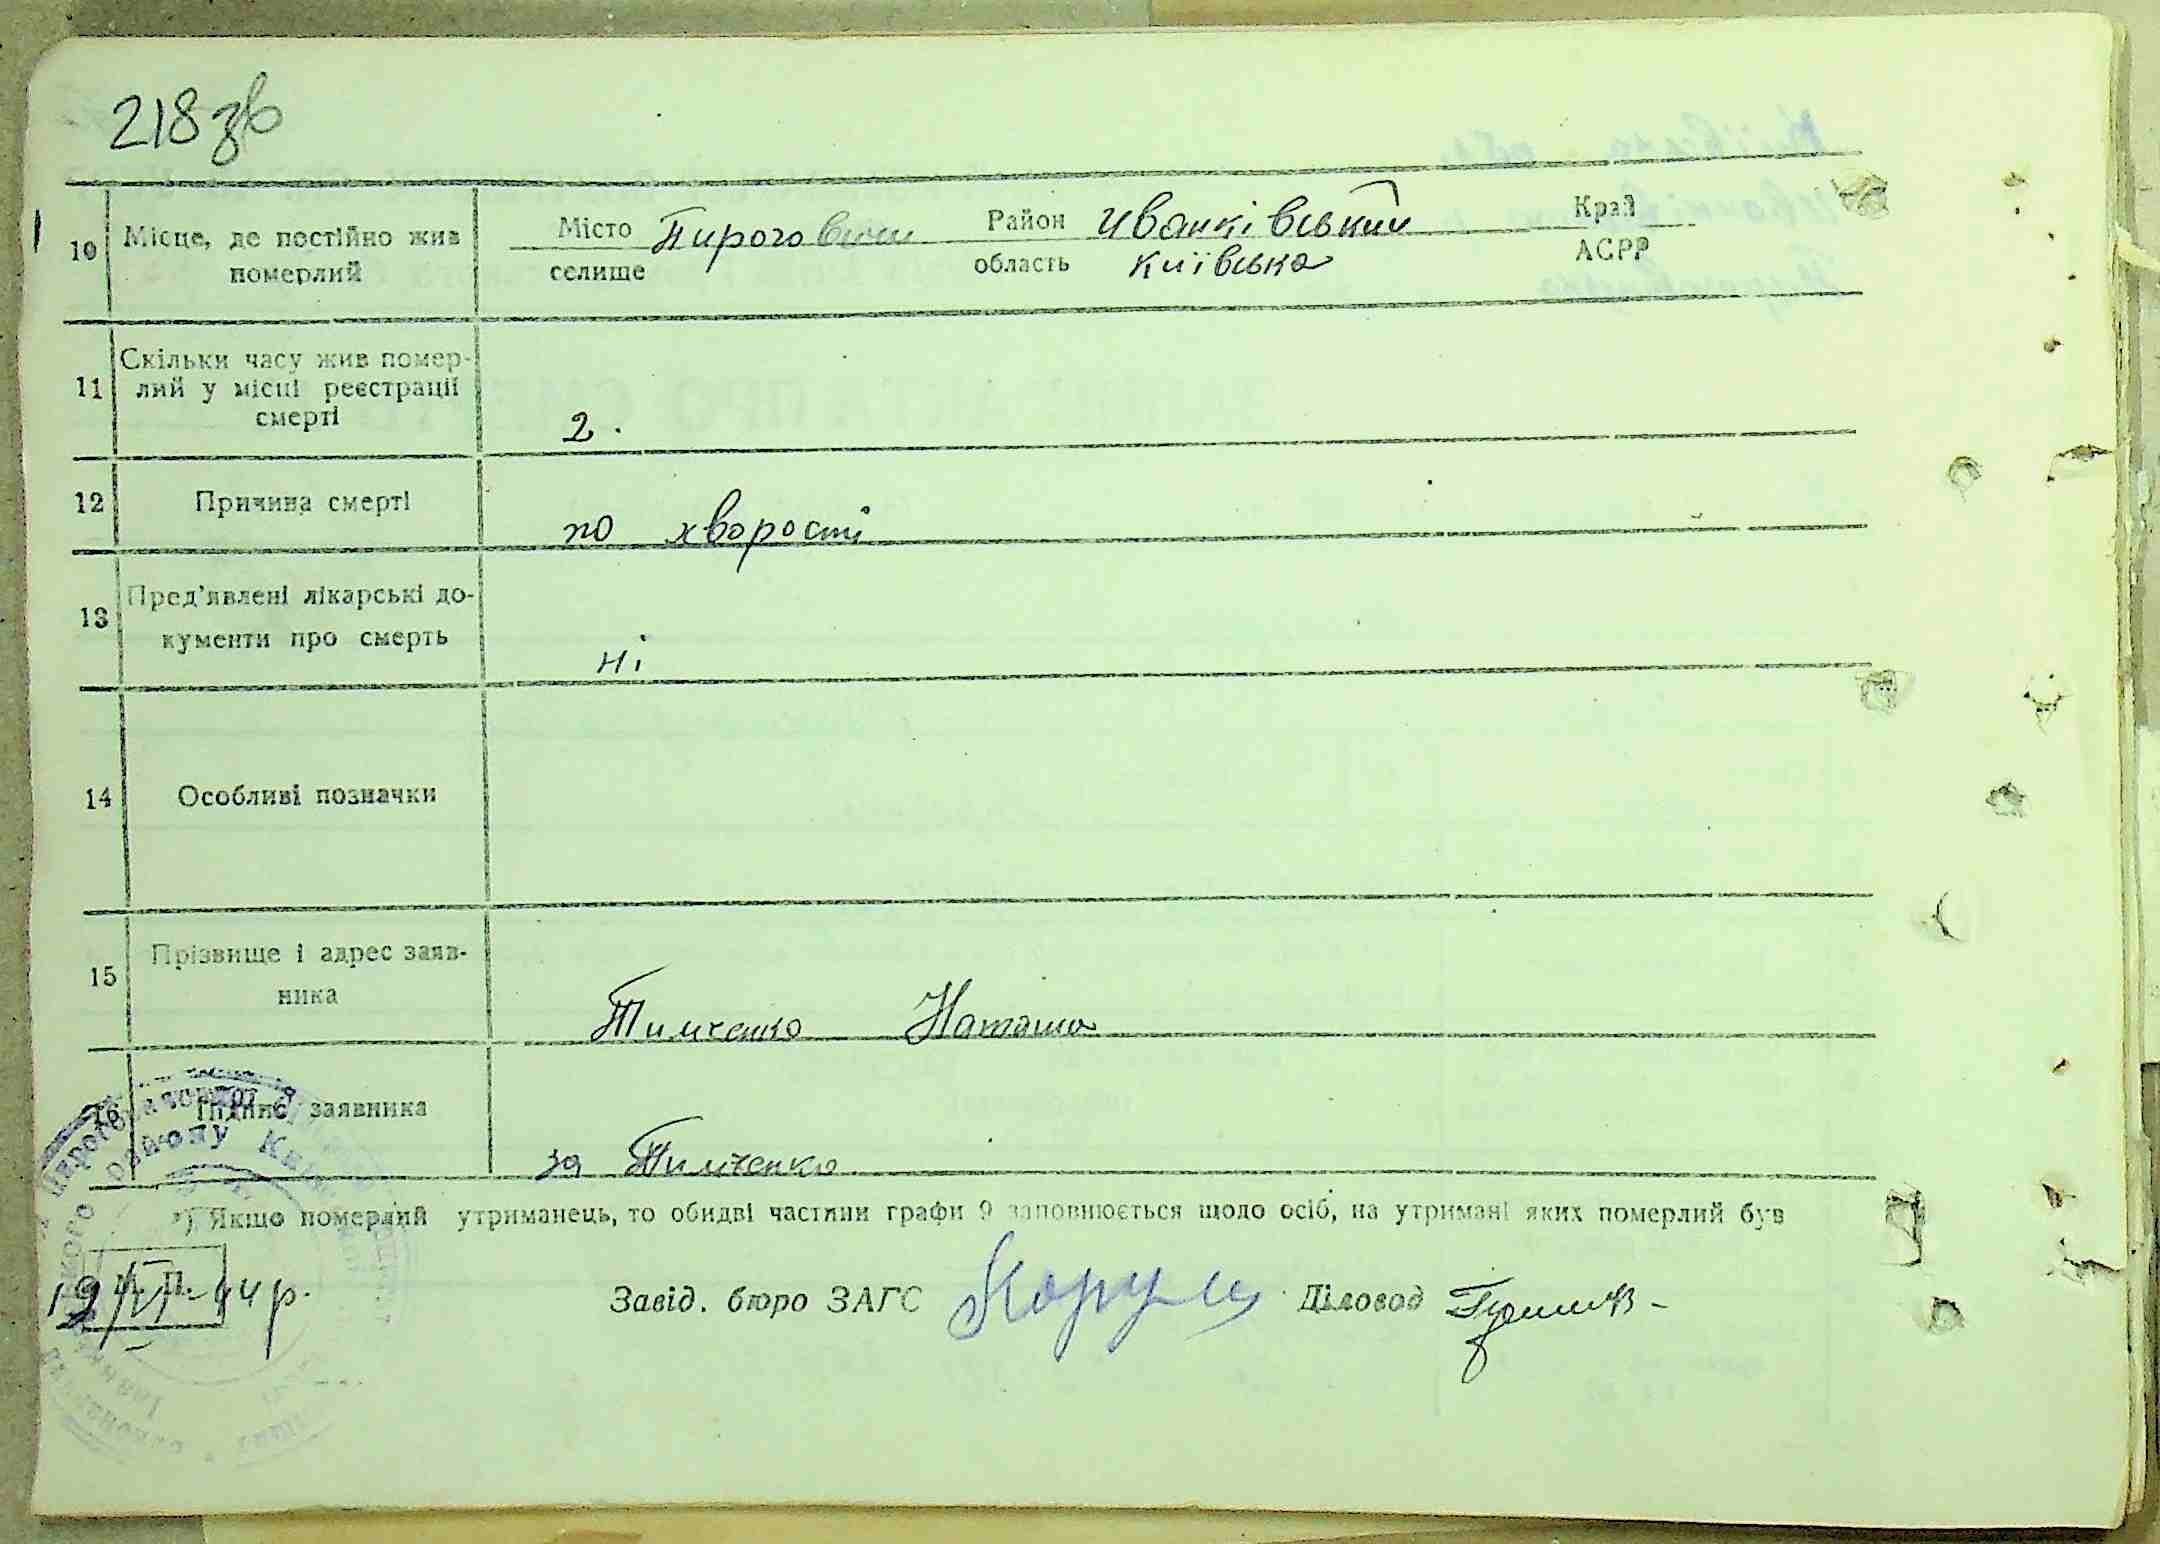 218 зв
10 Місце, де постійно жив померлий
Місто селище Пироговичи Район область Иванківський Київська Край АСРР
11 Скільки часу жив помер-
лий у місці реєстрації
смерті
2.
12 Причина смерті
по хворості
13 Пред'явлені лікарські до-
кументи про смерть
ні
14 Особливі позначки
15 Прізвище і адрес заяв-
ника
Тимченко Наташа
16 Підпис заявника
за Тимченко
*) Якщо померлий утриманець, то обидві частини графи 9 заповнюється щодо осіб, на утримані яких померлий був
М. П.
19/VI-44 р.
Завід. бюро ЗАГС Діловод